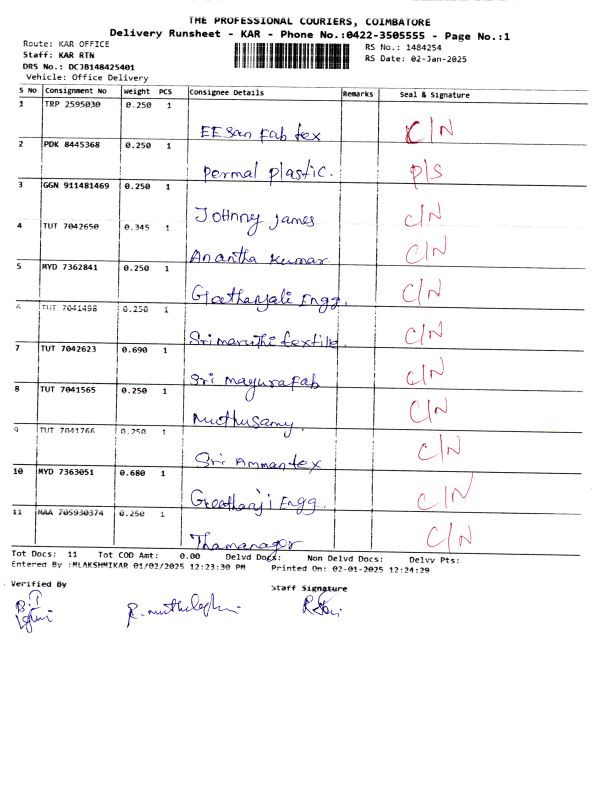 THE PROFESSIONAL COURIERS, COIMBATORE
Delivery Runsheet - KAR - Phone No.:0422-3505555 - Page No.:1
Route: KAR OFFICE
Staff: KAR RTN
DRS No.: DCJB148425401
Vehicle: Office Delivery
RS No.: 1484254
RS Date: 02-Jan-2025
S No Consignment No Weight PCS Consignee Details Remarks Seal & Signature
1 TRP 2595030 0.250 1
EESan Fab tex C/N
2 PDK 8445368 0.250 1
Permal plastic. P/S
3 GGN 911481469 0.250 1
Johnny James C/N
4 TUT 7042650 0.345 1
Anantha kumar C/N
5 MYD 7362841 0.250 1
Geethanjali Engg. C/N
6 TUT 7041498 0.250 1
Sri maruthi textile C/N
7 TUT 7042623 0.690 1
Sri mayura Fab C/N
8 TUT 7041565 0.250 1
Muthusamy. C/N
9 TUT 7041766 0.250 1
Sri Amman tex C/N
10 MYD 7363051 0.680 1
Engg. C/N
11 MAA 705930374 0.250 1
C/N
Tot Docs: 11 Tot COD Amt: 0.00 Delvd Docs: Non Delvd Docs: Delvv Pts:
Entered By :MLAKSHMIKAR 01/02/2025 12:23:30 PM Printed On: 02-01-2025 12:24:29
Verified By Staff Signature